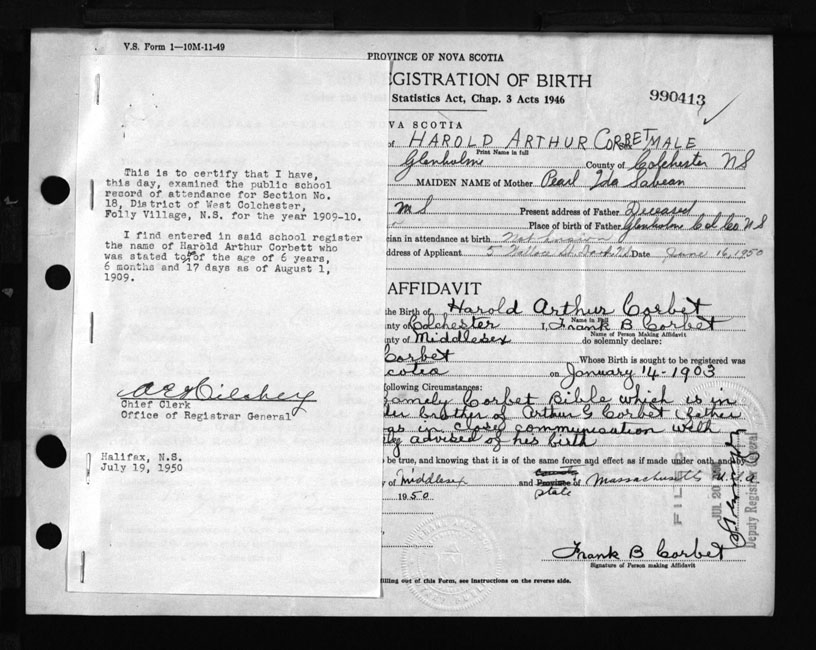 V.S. Form 1—10M-11-49
PROVINCE OF NOVA SCOTIA
EGISTRATION OF BIRTH
Statistics Act, Chap. 3 Acts 1946
990413
This is to certify that I have,
this day, examined the public school
record of attendance for Section No.
18, District of West Colchester,
Folly Village, N.S. for the year 1909-10.
I find entered in said school register
the name of Harold Arthur Corbett who
was stated to be of the age of 6 years,
6 months and 17 days as of August 1,
1909.
Chief Clerk
Office of Registrar General
Halifax, N.S.
July 19, 1950
VA SCOTIA
of HAROLD ARTHUR CORBET MALE
Print Name in full
Glenholme County of Colchester NS
MAIDEN NAME of Mother Pearl Ida Sabean
Present address of Father Diceased
Place of birth of Father Glenholme Col Co. N S
cian in attendance at birth
ddress of Applicant Date June 16, 1950
AFFIDAVIT
the Birth of Harold Arthur Corbet
Name in Full
nty of Colchester I, Frank B Corbet
Name of Person Making Affidavit
nty of Middlesex do solemnly declare:
Corbet Whose Birth is sought to be registered was
cotia on January 14-1903
following Circumstances:
Family Corbet Bible which is in
der brother of Arthur G Corbet (father
as in close communication with
advised of his birth
be true, and knowing that it is of the same force and effect as if made under oath and by
of Middlesex and Province of Massachusetts U.S.A
State
1950
FILED
JUL 20
Deputy Registrar General
Frank B Corbet
Signature of Person making Affidavit
filling out of this Form, see instructions on the reverse side.